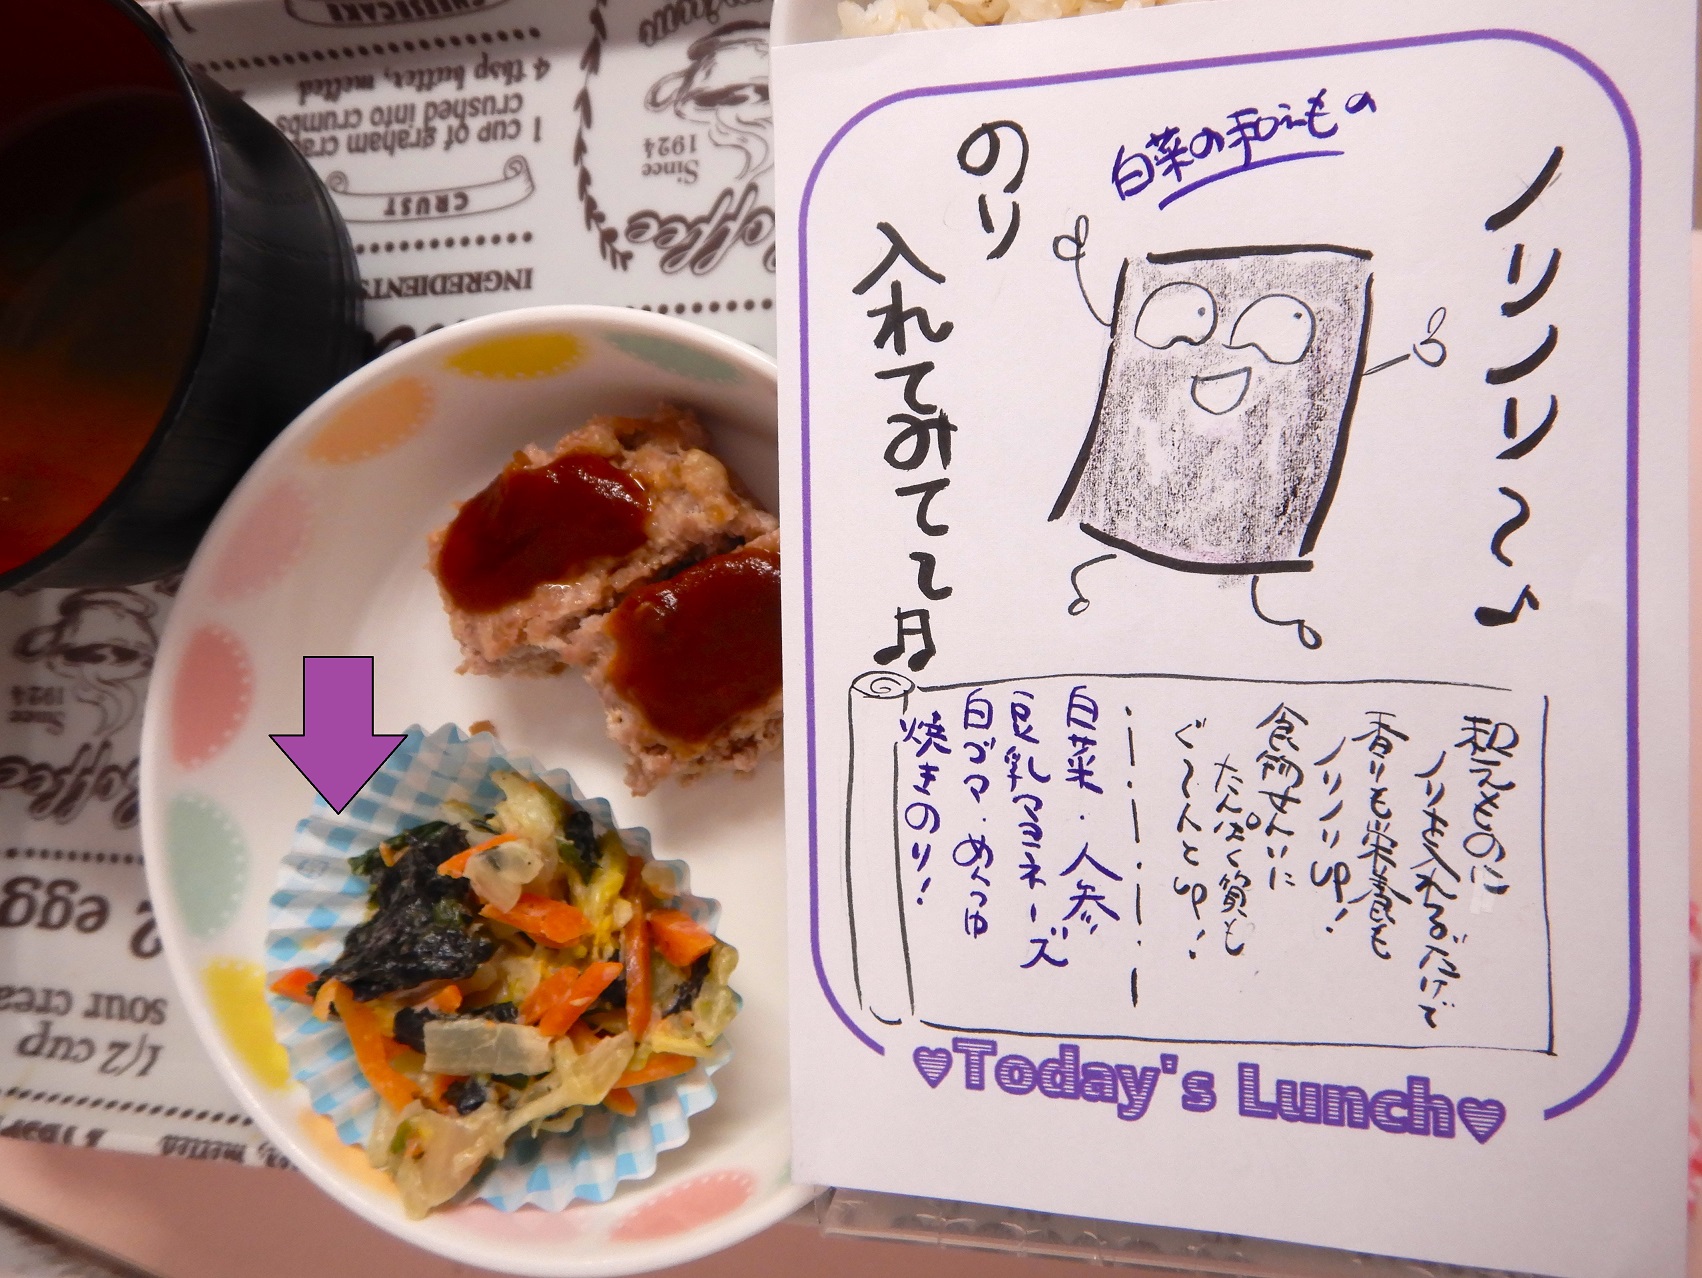 CHEESECAKE
4 tbsp butter, melted
crushed into crumbs
1 cup of graham cra
CRUST
INGREDIENTS
Since
1924
Coffee
1924
Coffee
2 egg
sour crea
1/2 cup
melted
白菜の和えもの
ノリノリ〜♪
のり
入れてみてて♬
和えものに
ノリを入れるだけで
香りも栄養も
ノリノリUP!
食物せんいに
たんぱく質も
ぐ〜んとUP!
白菜・人参
豆乳マヨネーズ
白ゴマ・めんつゆ
焼きのり!
♥Today's Lunch♥